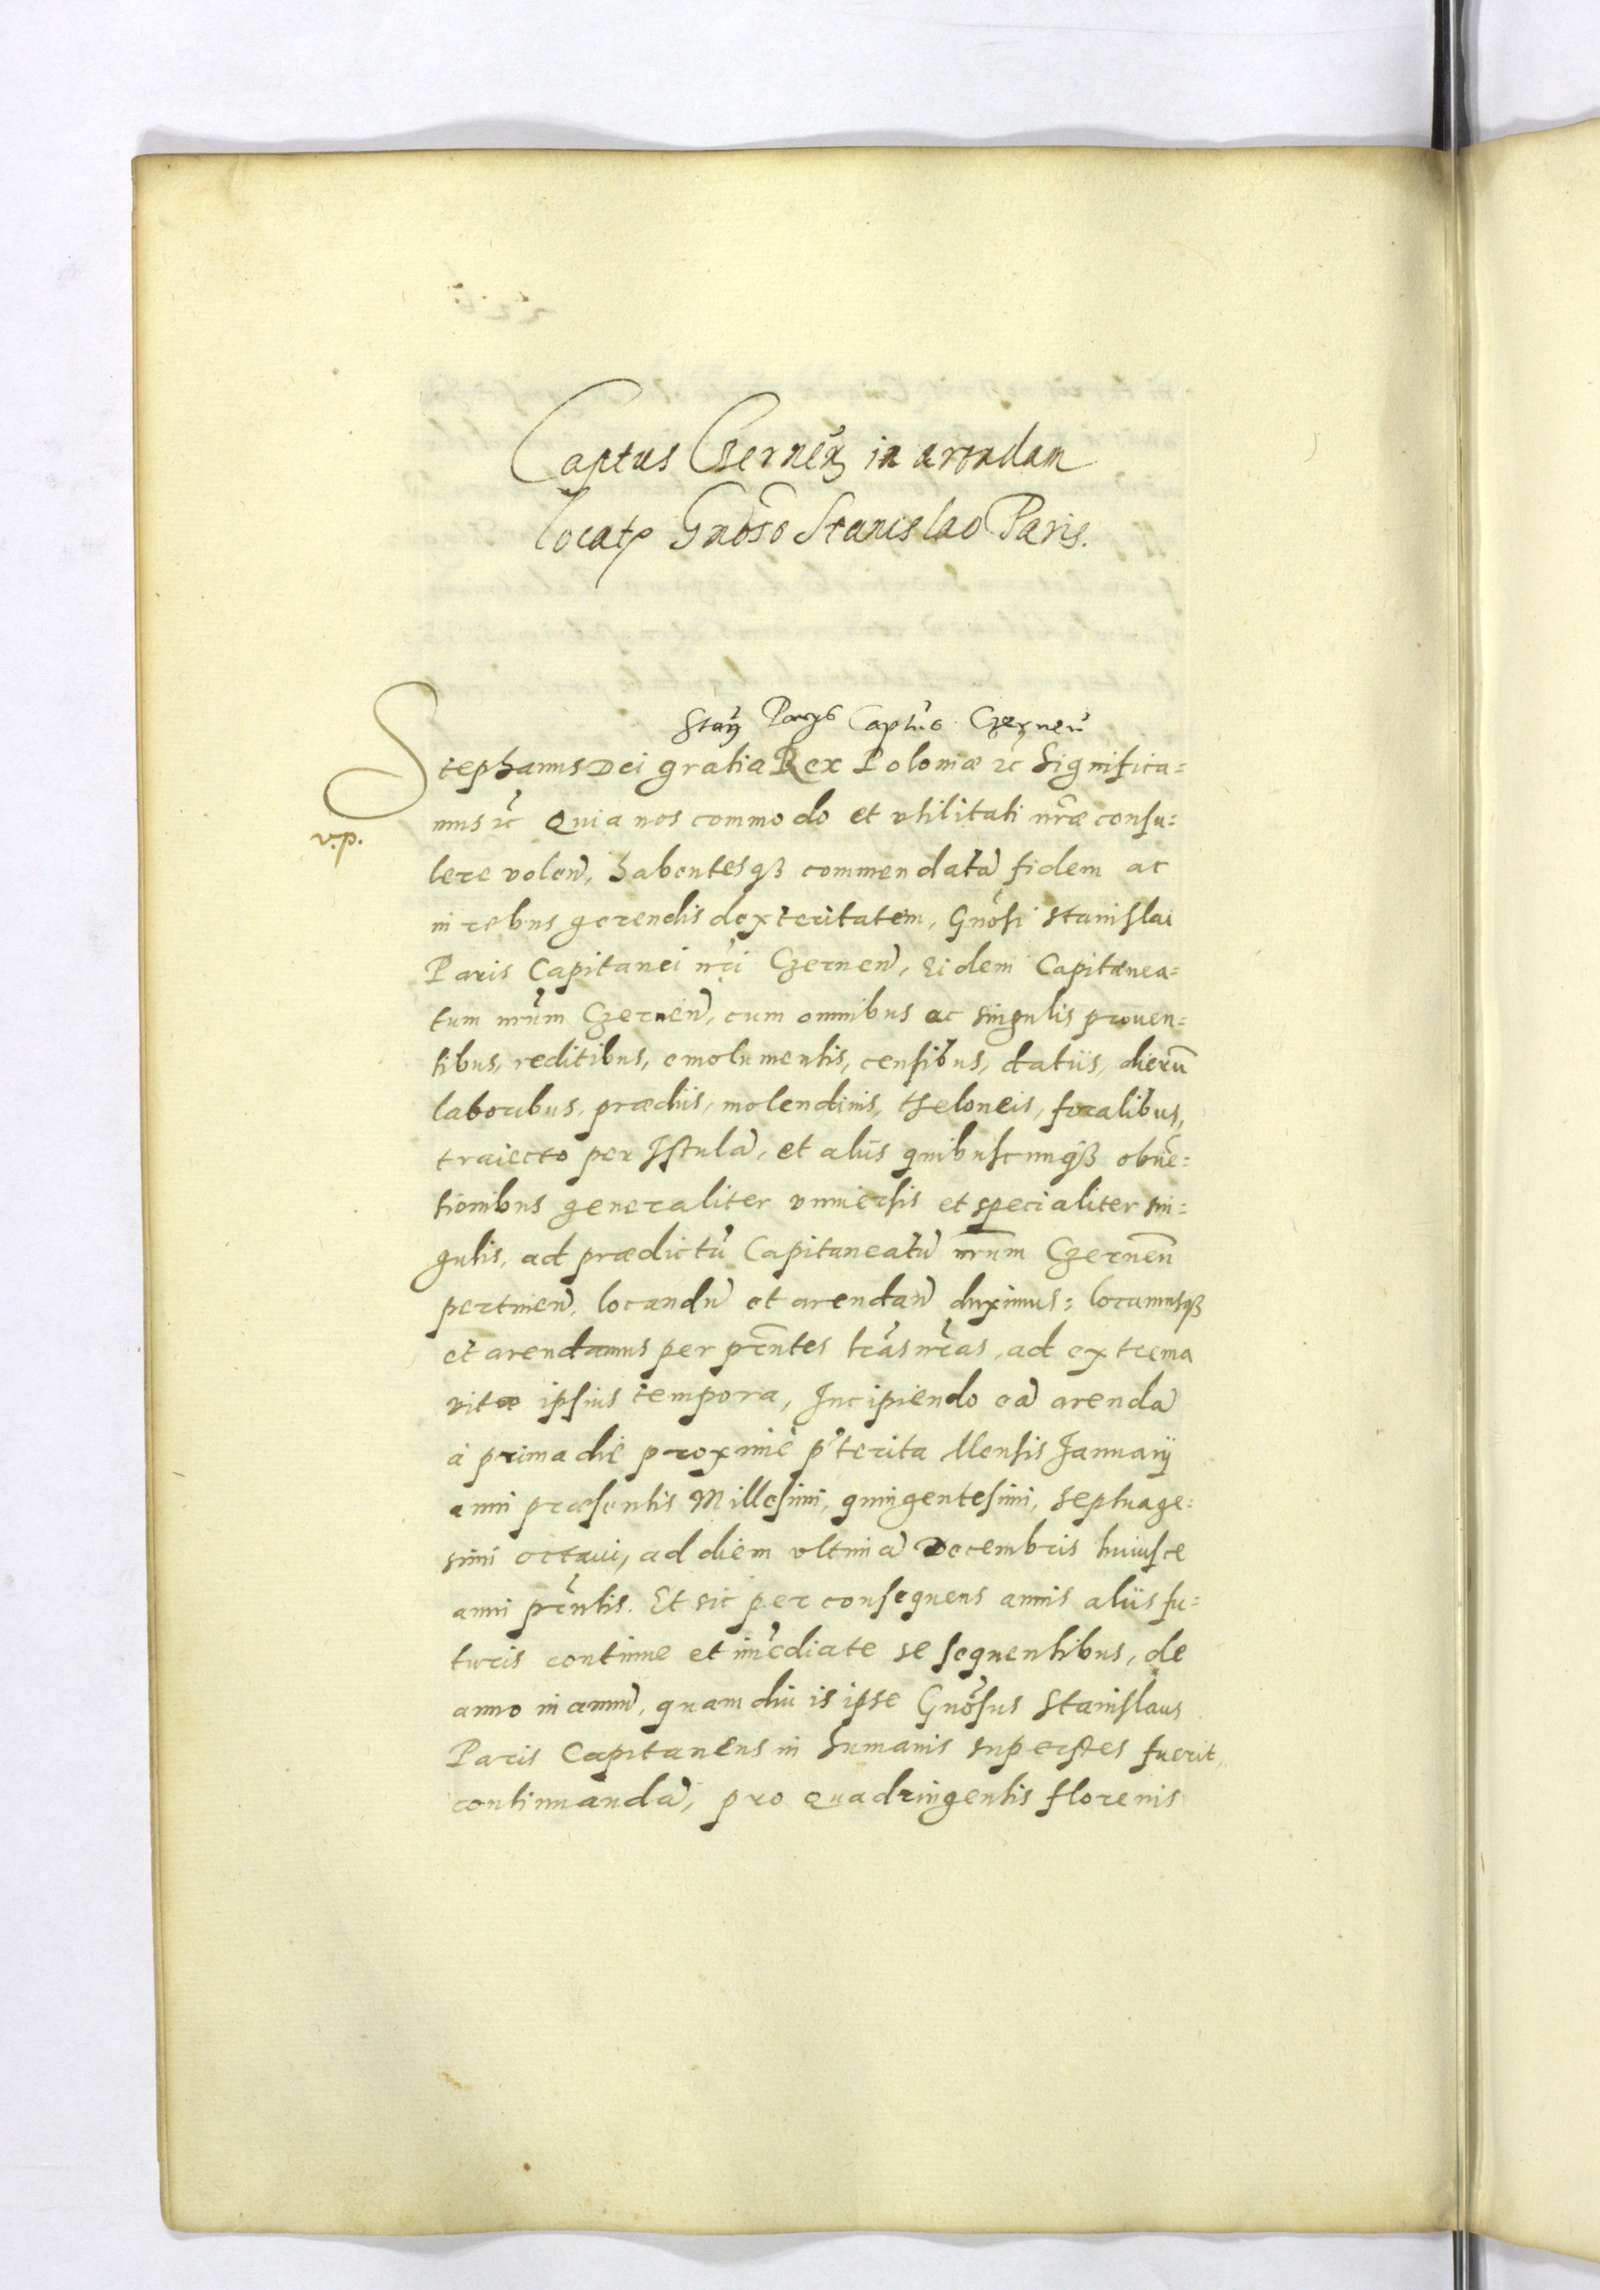 Captus Czerneñ in arendam
locatᵱ Gnoso Stanislao Paris.
Capt̃us Czerneñ
Stephanus Dei gratia Rex Poloniæ ꝛc̃ Significa=
mus ꝛc̃ Quia nos commodo et vtilitati nr̃æ consu=
v.p.
lere voleñ, habentesqꝫ commendatã fidem ac
in rebus gerendis dexteritatem, Gnõsi Stanislai
Paris Capitanei nr̃i Czerneñ, Eidem Capitanea=
tum nr̃um Czerneñ, cum omnibus ac singulis prouen=
tibus, reditibus, emolumentis, censibus, datiis, dierũ
laboribus, prædiis, molendinis, theloneis, foralibus,
traiecto per Istulã, et aliis quibuscunqꝫ obuẽ=
tionibus generaliter vniuersis et specialiter sin=
gulis, ad prædictũ Capitaneatũ nr̃um Czerneñ
pertineñ, locandũ et arendañ duximus: locamusqꝫ
et arendamus per pñtes lr̃as nr̃as, ad extrema
vitæ ipsius tempora, Incipiendo eã arendã
à prima die proximè p̃terita Mensis Januarij
anni præsentis Millesimi, quingentesimi, septuage=
simi octaui, ad diem vltimã Decembris huiusce
anni pñtis. Et sic per consequens annis aliis fu=
turis continue et im̃ediate se sequentibus, de
anno in annũ, quamdiu is ipse Gnõsus Stanislaus
Paris Capitaneus in humanis superstes fuerit,
continuandã, pro Quadringentis florenis